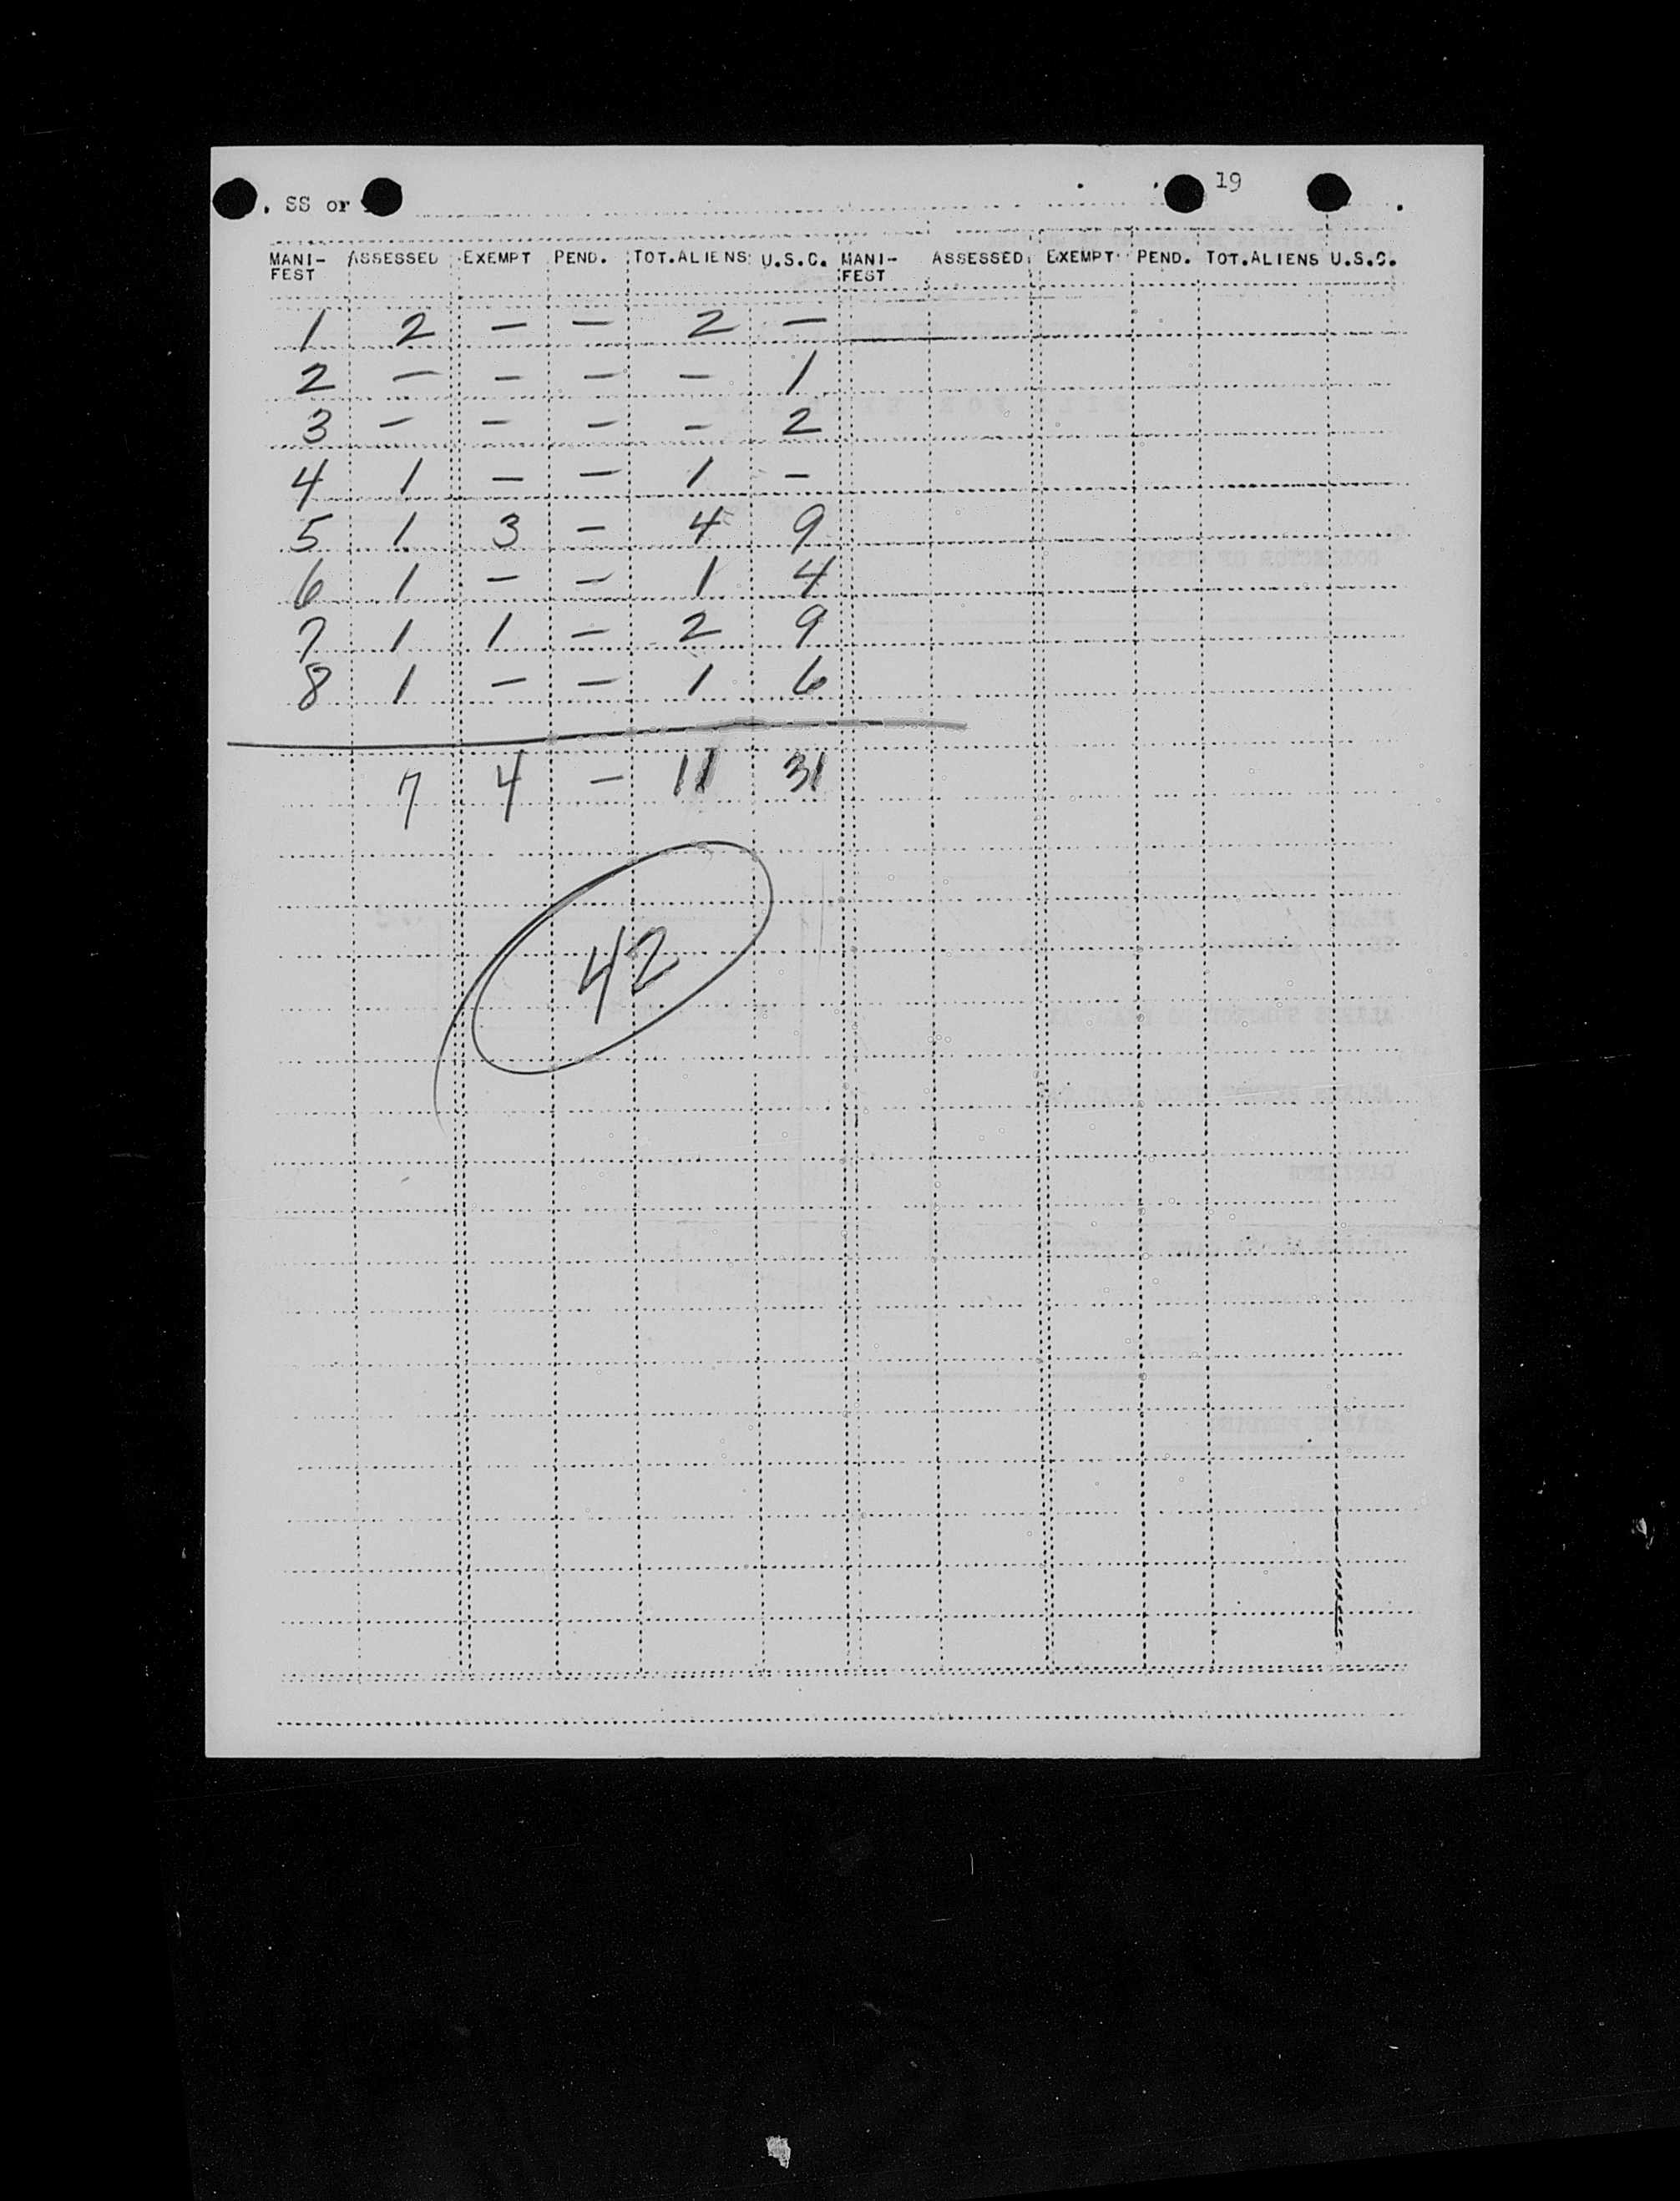 . SS or 19
MANI- ASSESSED EXEMPT PEND. TOT.ALIENS U.S.C. MANI- ASSESSED EXEMPT PEND. TOT.ALIENS U.S.C.
FEST FEST
1 2 — — 2 —
2 — — — — 1
3 — — — — 2
4 1 — — 1 —
5 1 3 — 4 9
6 1 — — 1 4
7 1 1 — 2 9
8 1 — — 1 6
7 4 — 11 31
42